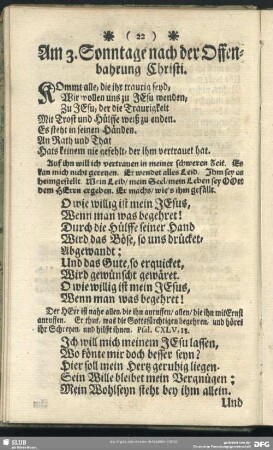 (22)
Am 3. Sonntage nach der Offen-
bahrung Christi.
KOmmt alle, die ihr traurig seyd,
Wir wollen uns zu JEsu wenden,
Zu JEsu, der die Traurigkeit
Mit Trost und Hülffe weiß zu enden.
Es steht in seinen Händen.
An Rath und That
Hats keinem nie gefehlt, der ihm vertrauet hat.
Auf ihn will ich vertrauen in meiner schweren Zeit. Es
kan mich nicht gereuen. Er wendet alles Leid. Ihm sey es
heimgestellt. Mein Leib, mein Seel, mein Leben sey GOtt
dem HErrn ergeben. Er machs, wie's ihm gefällt.
O wie willig ist mein JEsus,
Wenn man was begehret!
Durch die Hülffe seiner Hand
Wird das Böse, so uns drücket,
Abgewandt;
Und das Gute, so erquicket,
Wird gewünscht gewäret.
O wie willig ist mein JEsus,
Wenn man was begehret!
Der HErr ist nahe allen, die ihn anruffen, allen, die ihn mit Ernst
anruffen. Er thut, was die Gottsfürchtigen begehren, und höret
ihr Schreyen, und hilfft ihnen. Psal. CXLV, 18.
Ich will mich meinem JEsu lassen,
Wo könte mir doch besser seyn?
Hier soll mein Hertz geruhig liegen.
Sein Wille bleibet mein Vergnügen;
Mein Wohlseyn steht bey ihm allein.
Und
SLUB
DFG